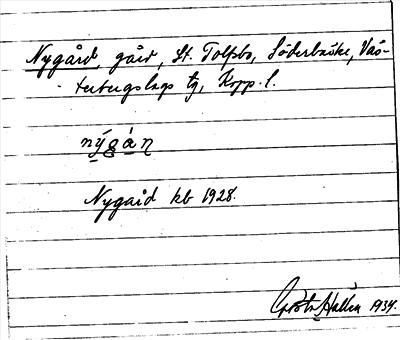 Nygård, gård, St. Tolfsbo, Söderbärke, Väs-
terbergslags tg, Kopp. l.
nýgán
Nygård kb 1928.
Gösta Hallén 1934.